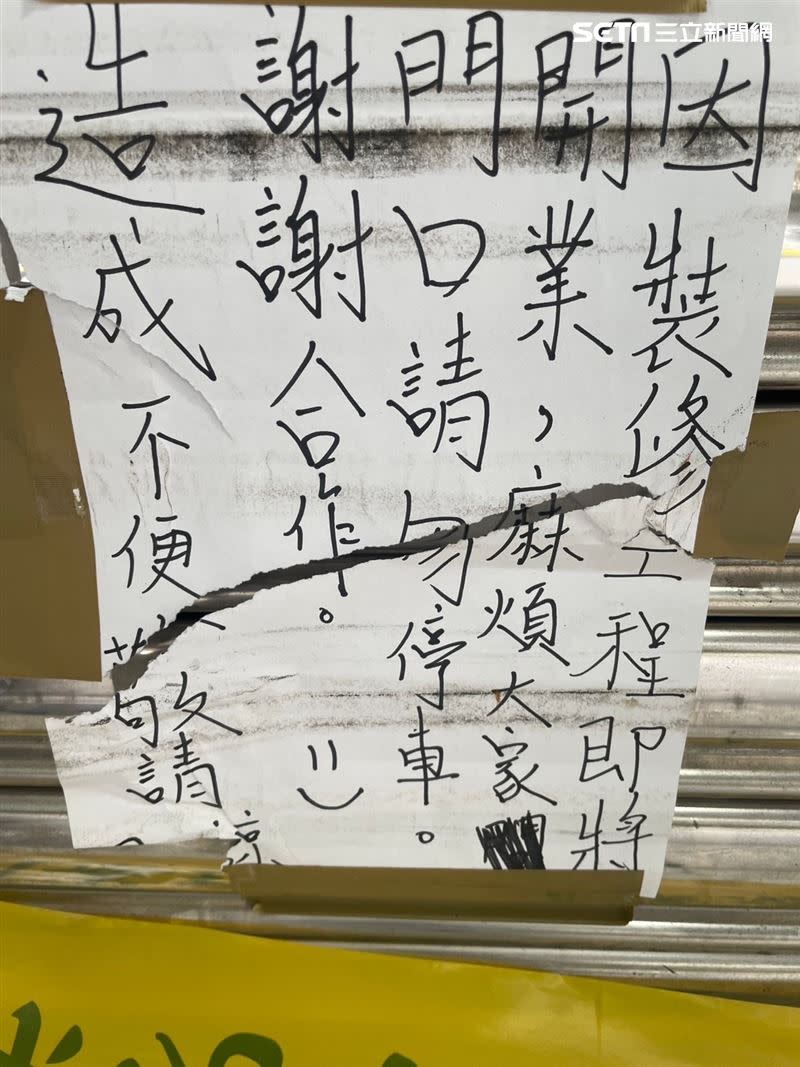 SETN 三立新聞網
因裝修工程即將
開業，麻煩大家
門口請勿停車。
謝謝合作。=)
造成不便敬請